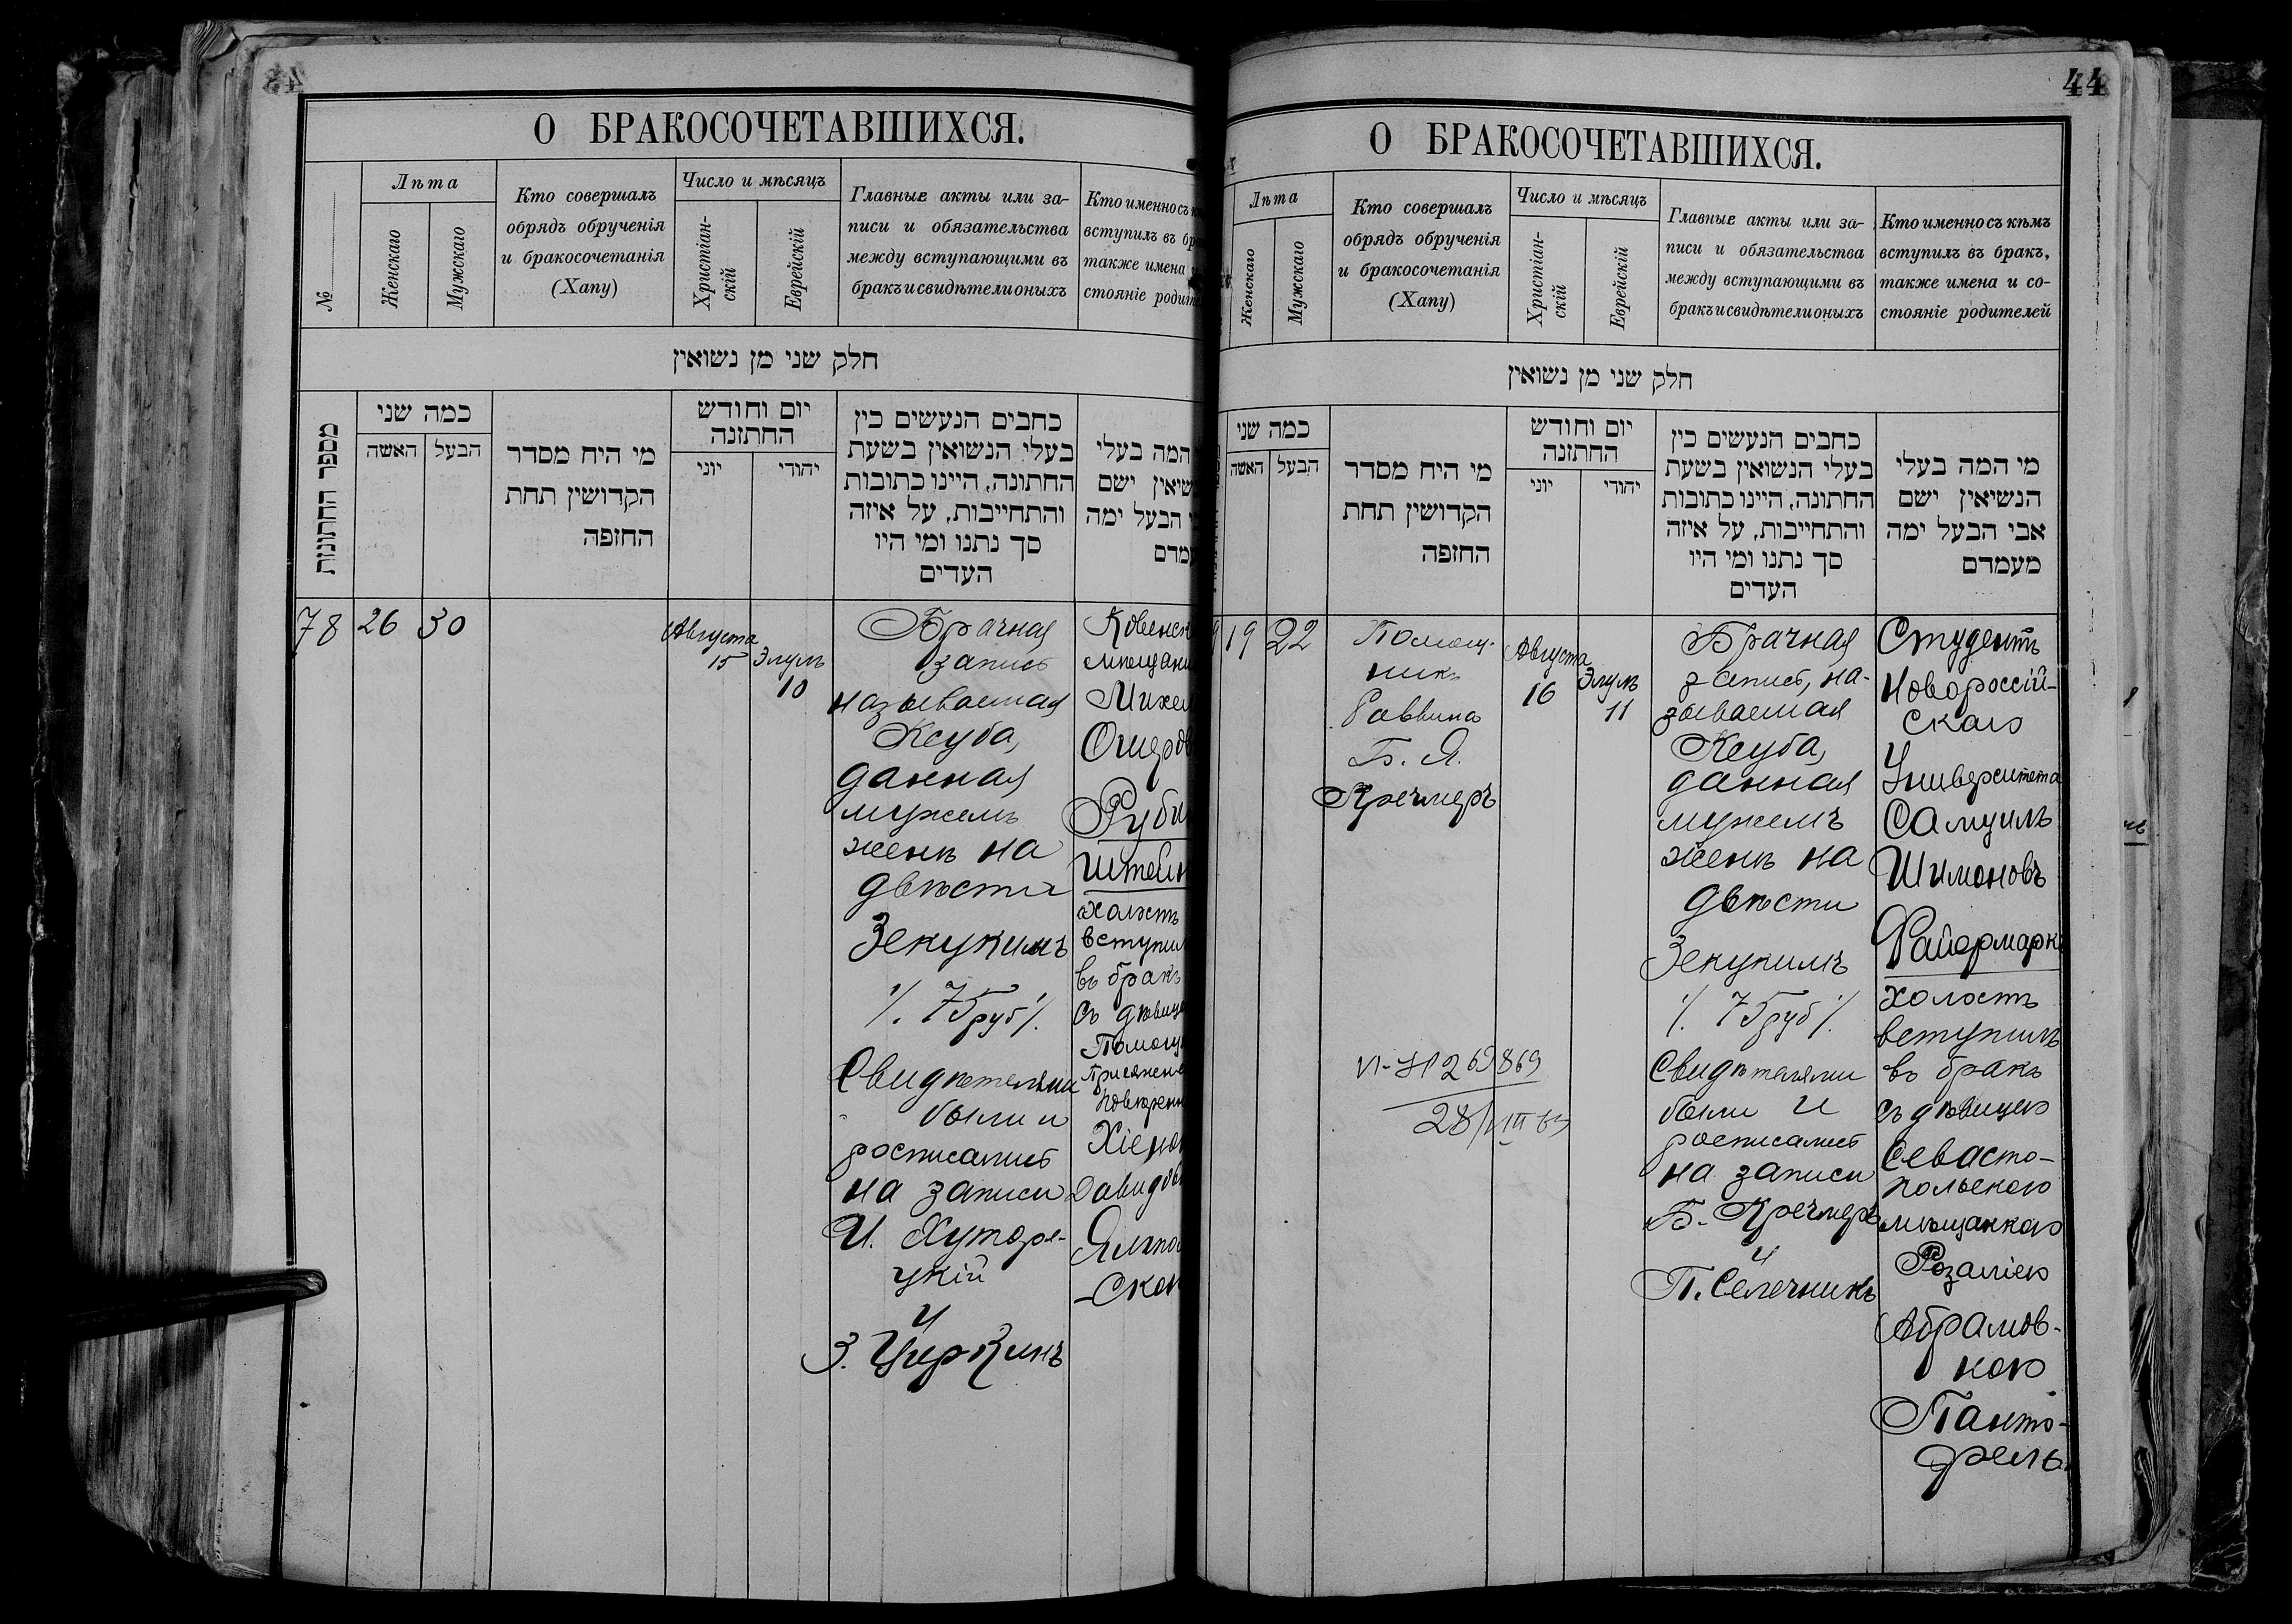 44
О БРАКОСОЧЕТАВШИХСЯ.
№
Лѣта
Женскаго
Мужскаго
Кто совершалъ
обрядъ обрученія
и бракосочетанія
(Хапу)
Число и мѣсяцъ
Христіан-
скій
Еврейскій
Главные акты или за-
писи и обязательства
между вступающими въ
бракъ и свидѣтели оныхъ
Кто именно съ
вступилъ въ
также имена
стояніе
חלק שני מן נשואין
מספר החתונות
כמה שני
האשה
הבעל
מי היח מסדר
הקדושין תחת
החופה
יום וחודש
החתונה
יוני
יהודי
כחבים הנעשים כין
בעלי הנשואין בשעת
החתונה, היינו כתובות
והתחייבות, על איזה
סך נתנו ומי היו
העדים
המה בעלי
ישם
הבעל ימה
78
26
30
Августа
15
Элулъ
10
Брачная
запись
называемая
Ксуба,
данная
мужемъ
женѣ на
двѣсти
Зекукимъ
/. 75 руб /.
Свидѣтелями
были и
росписались
на записи
И. Хуторе-
цкій
и
З. Циркинъ
холостъ
въ бракъ
съ
О БРАКОСОЧЕТАВШИХСЯ.
Лѣта
Женскаго
Мужскаго
Кто совершалъ
обрядъ обрученія
и бракосочетанія
(Хапу)
Число и мѣсяцъ
Христіан-
скій
Еврейскій
Главные акты или за-
писи и обязательства
между вступающими въ
бракъ и свидѣтели оныхъ
Кто именно съ кѣмъ
вступилъ въ бракъ,
также имена и со-
стояніе родителей
חלק שני מן נשואין
כמה שני
האשה
הבעל
מי היח מסדר
הקדושין תחת
החופה
יום וחודש
החתונה
יוני
יהודי
כחבים הנעשים כין
בעלי הנשואין בשעת
החתונה, היינו כתובות
והתחייבות, על איזה
סך נתנו ומי היו
העדים
מי המה בעלי
הנשיאין ישם
אבי הבעל ימה
מעמדם
19
22
Помощ-
никъ
Раввина
Б. Я.
Кречмеръ
Августа
16
Элулъ
11
Брачная
запись, на-
зываемая
Ксуба,
данная
мужемъ
женѣ на
двѣсти
Зекукимъ
/. 75 руб /.
Свидѣтелями
были и
росписались
на записи
Б. Кречмеръ
и
П. Селечникъ
Студентъ
Новороссій-
скаго
Университета
Самуилъ
Шимоновъ
Файермаркъ
холостъ
вступилъ
въ бракъ
съ дѣвицею
Севасто-
польскою
мѣщанкою
Розаліею
Абрамов-
ною
Панто-
фель.